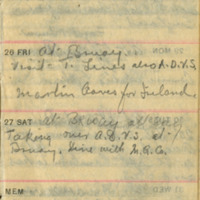 20 FRI at Bruay.
Visit T. Lines also A.D.V.S.
Martin leaves for Ireland.
27 SAT at Bruay at
Taking over A.D.V.S. at
Bruay. Dine with
MEM